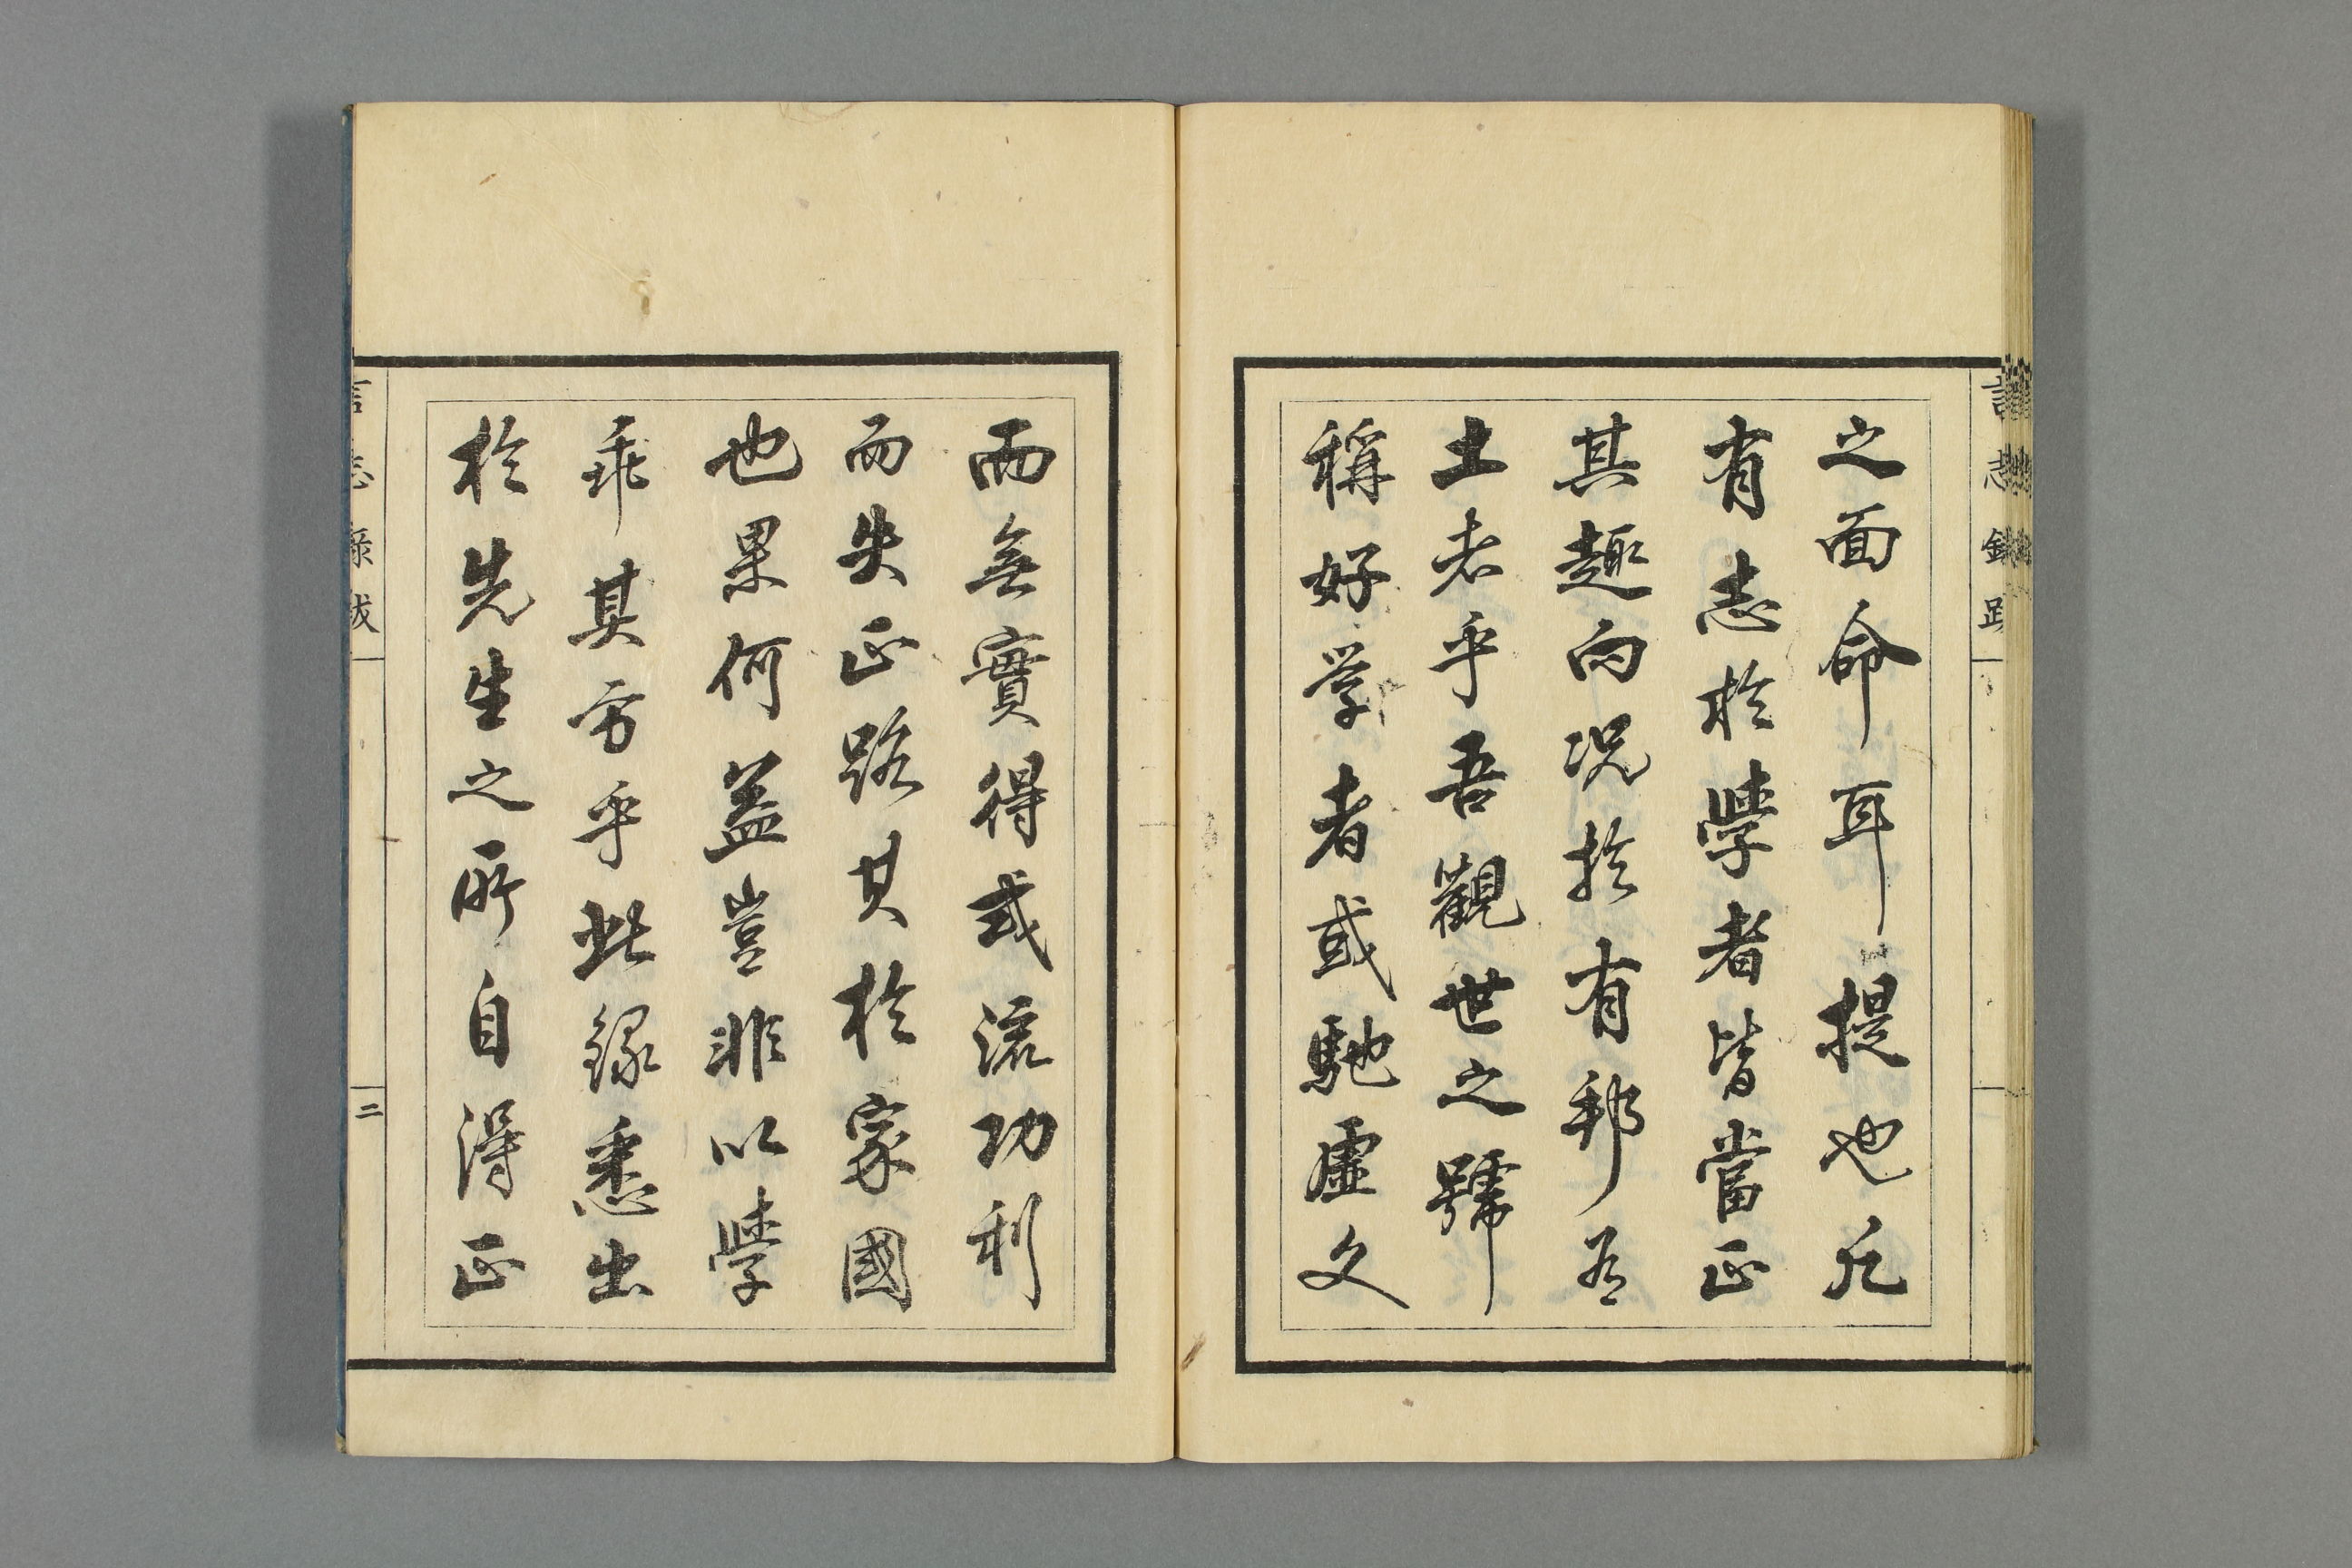 之面命耳提也凡
有志於學者皆當正
其趣向况於有邦有
土者乎吾觀世之號
稱好学者或馳虛文
而無實得或流功利
而失正路其於家國
也果何益豈非以學
乖其方乎此錄悉出
於先生之所自得正
言志錄跋
二